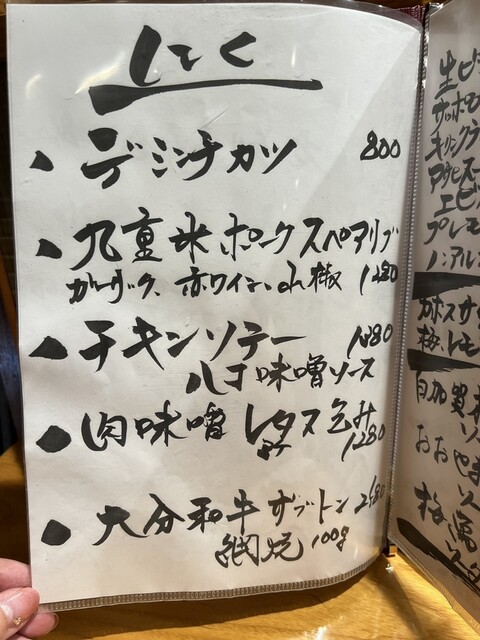 してく
デミンチカツ 800
九重米ポークスペアリブ
ガーリック、赤ワイン、山椒 1280
チキンソテー 1080
八丁味噌ソース
肉味噌レタス包み
1280
大分和牛ザブトン 2480
網焼 100g
生ビ
サッポロ
キリンラ
アサヒスー
エビ
プレモ
ノンアル
カボスサ
梅、レモ
加賀
おお
梅